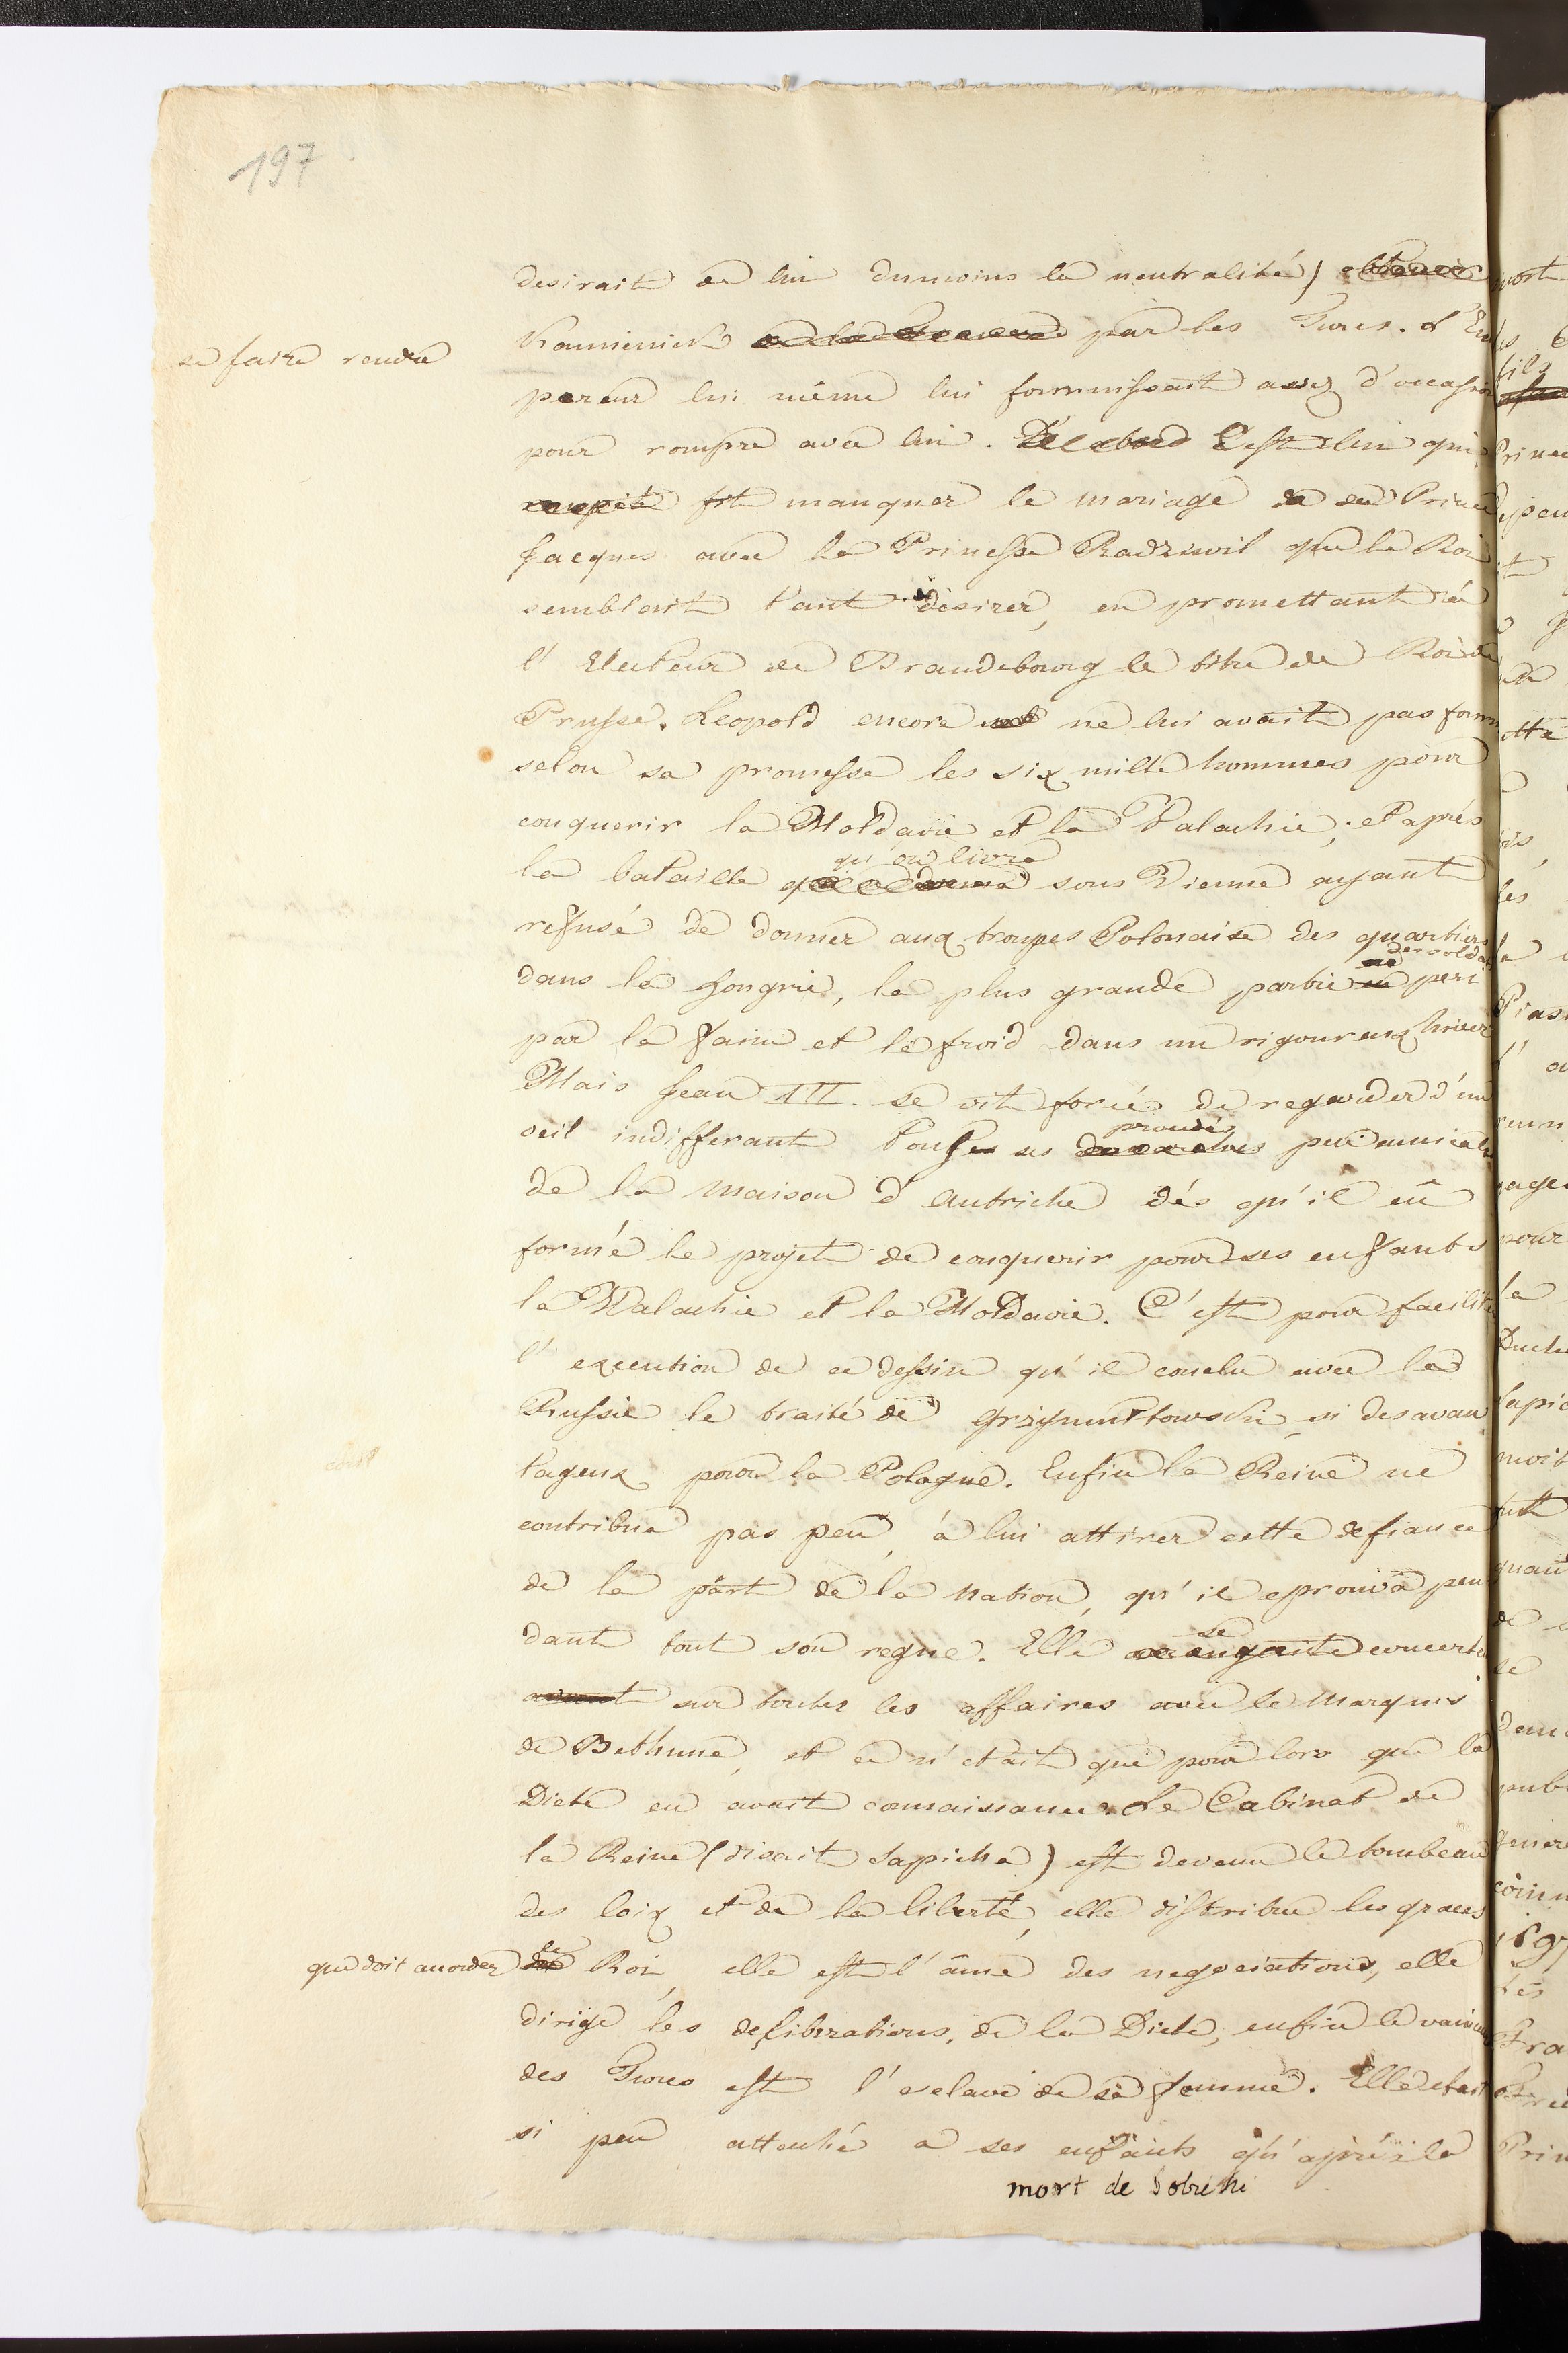 197
desirait de lui dumoins la neutralité) obtenir
se faire rendre
Kamieniek par les Turcs. L'Em
pereur lui même lui fournissait assez d'occasion
pour rompre avec lui. D'abord C'est lui qui
fit manquer le mariage de du Prince
Jacques avec la Princesse Radziwil que le Roi
semblait tant desirer, en promettant à
l'Electeur de Brandebourg le titre de Roi de
Prusse. Leopold encore ne lui avait pas fourni
selon sa promesse les six mille hommes pour
conquerir la Moldavie et la Valachie; et aprés
qu'on livra
la bataille sous Vienne ayant
refusé de donner aux troupes Polonaise des quartiers
des soldats
dans la Hongrie, la plus grande partie peri
par la faim et le froid dans un rigoureux hiver
Mais Jean III se vit forcé de regarder d'un
procedés
oeil indifferant tous ses demarches peu amicales
de la maison d'Autriche dés qu'il eû
formé le projet de conquerir pour ses enfants
la Walachie et la Moldavie. C'est pour faciliter
l'execution de ce dessin qu'il conclu avec la
Russie le traité de Grzymultowski si desavan
tageux pour la Pologne. Enfin la Reine ne
contribua pas peu à lui attirer cette defiance
de la part de la nation, qu'il eprouva pen
dant tout son regne. Elle se concerta
sur toutes les affaires avec le Marquis
de Bethune, et ce n'etait que pour lors que la
Diete en avait connaissance. Le Cabinet de
la Reine (disait Sapieha) est devenu le tombeau
des loix et de la liberté, elle distribue les graces
que doit accorder
le Roi, elle est l'âme des negociations, elle
dirige les deliberations de la Diete, enfin le vainqueur
des Turcs est l'esclave de sa femme. Elle etait
si peu attaché a ses enfants qu'aprés la
mort de Sobieski